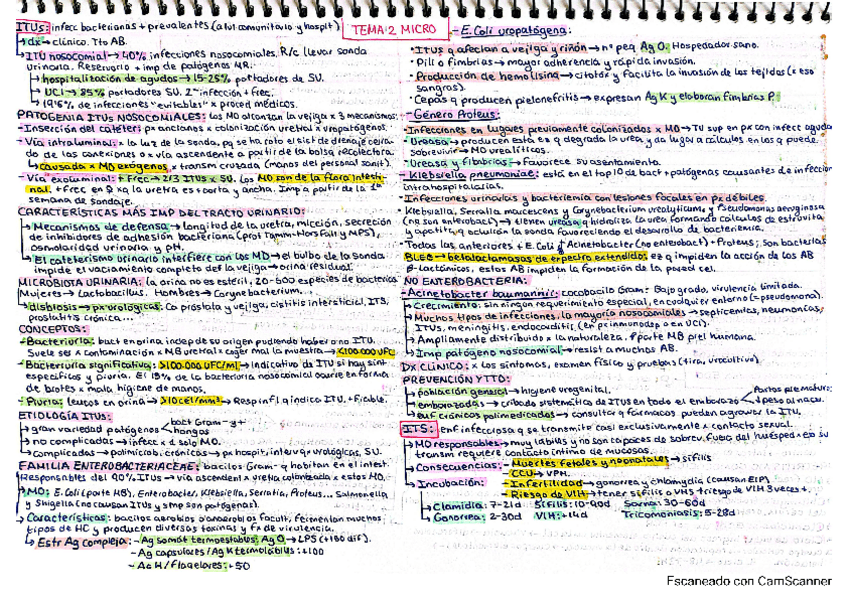 TEMA 2 MICRO
ITUs: infecc bacterianas + prevalentes (a nivel comunitario y hospit)
dx → clínico. Tto AB.
ITU nosocomial → 40% infecciones nosocomiales. R/c llevar sonda
urinaria. Reservorio + imp de patógenos MR.
hospitalización de agudos → 15-25% portadores de SU.
UCI → 85% portadores SU. 2ª infección + frec.
de infecciones "evitables" x proced médicos.
PATOGENIA ITUs NOSOCOMIALES: los MO alcanzan la vejiga x 3 mecanismos:
- Inserción del catéter: px ancianos x colonización uretral x uropatógenos.
- Vía intraluminal: x la luz de la sonda, pq se ha roto el sist de drenaje cerra-
do de las conexiones o x vía ascendente a partir de la bolsa recolectora.
causada x MO exógenos, transm cruzada (manos del personal sanit).
- Vía exoluminal: + frec → 2/3 ITUs x SU. Los MO son de la flora intesti-
nal. + frec en ♀ xq la uretra es + corta y ancha. Imp a partir de la 1ª
semana de sondaje.
CARACTERÍSTICAS MÁS IMP DEL TRACTO URINARIO:
Mecanismos de defensa → longitud de la uretra, micción, secreción
de inhibidores de adhesión bacteriana (prot Tamm-Horsfall y MPS),
osmolaridad urinaria y pH.
El cateterismo urinario interfiere con los MD → el bulbo de la sonda
impide el vaciamiento completo de la vejiga → orina residual.
MICROBIOTA URINARIA: la orina no es estéril, 20-500 especies de bacterias
Mujeres → Lactobacillus. Hombres → Corynebacterium.
disbiosis → px urológicas: Ca próstata y vejiga, cistitis intersticial, ITS,
prostatitis crónica...
CONCEPTOS:
- Bacteriuria: bact en orina indep de su origen pudiendo haber o no ITU.
Suele ser x contaminación x MB uretral x coger mal la muestra → <100.000 UFC
- Bacteriuria significativa: >100.000 UFC/ml → indicativo de ITU si hay sínt
específicos y piuria. El 15% de la bacteriuria nosocomial ocurre en forma
de brotes x mala higiene de manos.
- Piuria: leucos en orina → >10 cel/mm³ → Resp infl q indica ITU. + fiable.
ETIOLOGÍA ITUs:
gran variedad patógenos bact Gram - y +
hongos
no complicadas → infecc x 1 solo MO.
complicadas → polimicrob, crónicas → px hospit, interv q urológicas, SU.
FAMILIA ENTEROBACTERIACEAE: bacilos Gram - q habitan en el intest.
Responsables del 90% ITUs → vía ascendent x uretra colonizada x estos MO.
MO: E. Coli (parte MB), Enterobacter, Klebsiella, Serratia, Proteus... Salmonella
y Shigella (no causan ITUs y smp son patógenas).
Características: bacilos aerobios o anaerobios facult, fermentan muchos
tipos de HC y producen diversas toxinas y fx de virulencia.
Estr Ag compleja: - Ag somát termoestables, Ag O → LPS (+100 dif).
- Ag capsulares / Ag K termolábiles: +100
- Ag H / Flagelares: +50
- E. Coli uropatógena:
ITUs q afectan a vejiga y riñón → nº peq Ag O. Hospedador sano.
Pili o fimbrias → mayor adherencia y rápida invasión.
Producción de hemolisina → citotóx y facilita la invasión de los tejidos (x eso
sangras).
Cepas q producen pielonefritis → expresan Ag K y elaboran fimbrias P.
- Género Proteus:
Infecciones en lugares previamente colonizados x MO → TU sup en px con infect aguda
Ureasa → producen esta ez q degrada la urea y da lugar a cálculos en los q puede
sobrevivir → MO urealíticos.
Ureasa y fibabrias → favorece su asentamiento.
- Klebsiella pneumoniae: está en el top 10 de bact + patógenas causantes de infeccion
intrahospitalarias.
Infecciones urinarias y bacteriemia con lesiones focales en px débiles.
Klebsiella, Serratia marcescens y Corynebacterium urealyticum y Pseudomonas aeruginosa
(no son enterobact) → tienen ureasa q hidroliza la urea formando cálculos de estruvita
y apatita, q ocluirán la sonda favoreciendo el desarrollo de bacteriemia.
Todas las anteriores + E. Coli y Acinetobacter (no enterobact) + Proteus, son bacterias
BLEE → betalactamasas de espectro extendido, ez q impiden la acción de los AB
β-lactámicos, estos AB impiden la formación de la pared cel.
NO ENTEROBACTERIA:
- Acinetobacter baumannii: cocobacilo Gram -. Bajo grado, virulencia limitada.
Crecimiento: sin ningún requerimiento especial, en cualquier entorno (= pseudomona).
Muchos tipos de infecciones, la mayoría nosocomiales → septicemias, neumonías,
ITUs, meningitis, endocarditis, (en px inmunodep o en UCI).
Ampliamente distribuido x la naturaleza, parte MB piel humana.
Imp patógeno nosocomial → resist a muchos AB.
DX CLÍNICO: x los síntomas, examen físico y pruebas (tira, urocultivo).
PREVENCIÓN Y TTO:
población general → higiene urogenital.
embarazadas → cribado sistemático de ITUs en todo el embarazo Partos prematuros
↓ peso al nacer.
enf crónicas polimedicados → consultar q fármacos pueden agravar la ITU.
ITS: enf infecciosa q se transmite casi exclusivamente x contacto sexual.
MO responsables → muy lábiles y no son capaces de sobrev. fuera del huésped → en su
transm requiere contacto íntimo de mucosas.
Consecuencias: - Muertes fetales y neonatales → sífilis
- CCU → VPH.
- Infertilidad → gonorrea y chlamydia (causan EIP)
- Riesgo de VIH → tener sífilis o VHS ↑ riesgo de VIH 3 veces +.
Incubación:
Clamidia: 7-21d Sífilis: 10-90d Sarna: 30-60d
Gonorrea: 2-30d VIH: +14d Tricomoniasis: 5-28d
Escaneado con CamScanner